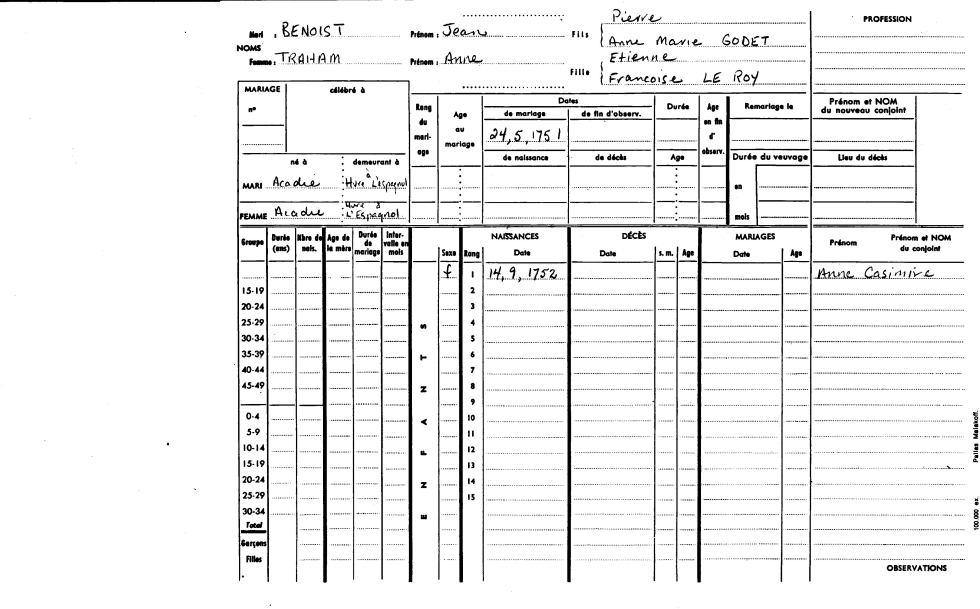 Pierre
PROFESSION
Mari : BENOIST Prénom : Jean Fils
Anne Marie GODET
NOMS
Femme : TRAHAM Prénom : Anne
Etienne
Fille
Francoise LE ROY
MARIAGE célébré à
n°
Rang du mari-age
Age au mariage
Dates
de mariage de fin d'observ.
Durée
Age en fin d' observ.
Remariage le
Prénom et NOM du nouveau conjoint
24, 5, 1751
de naissance de décès Age
Durée du veuvage
Lieu du décès
né à demeurant à
MARI Acadie Hvre à L'Espagnol
en
FEMME Acadie Hvre à L'Espagnol
mois
Groupe Durée (ans) Nbre de nais. Age de la mère Durée de mariage Inter-valle en mois
NAISSANCES DÉCÈS MARIAGES
Sexe Rang Date Date s. m. Age Date Age Prénom Prénom et NOM du conjoint
f 1 14, 9, 1752 Anne Casimire
15-19 2
20-24 3
25-29 4
30-34 5
35-39 6
40-44 7
45-49 8
9
0-4 10
5-9 11
10-14 12
15-19 13
20-24 14
25-29 15
30-34
Total
Garçons
Filles
ENFANTS
OBSERVATIONS
100.000 ex. Pallas Malakoff.